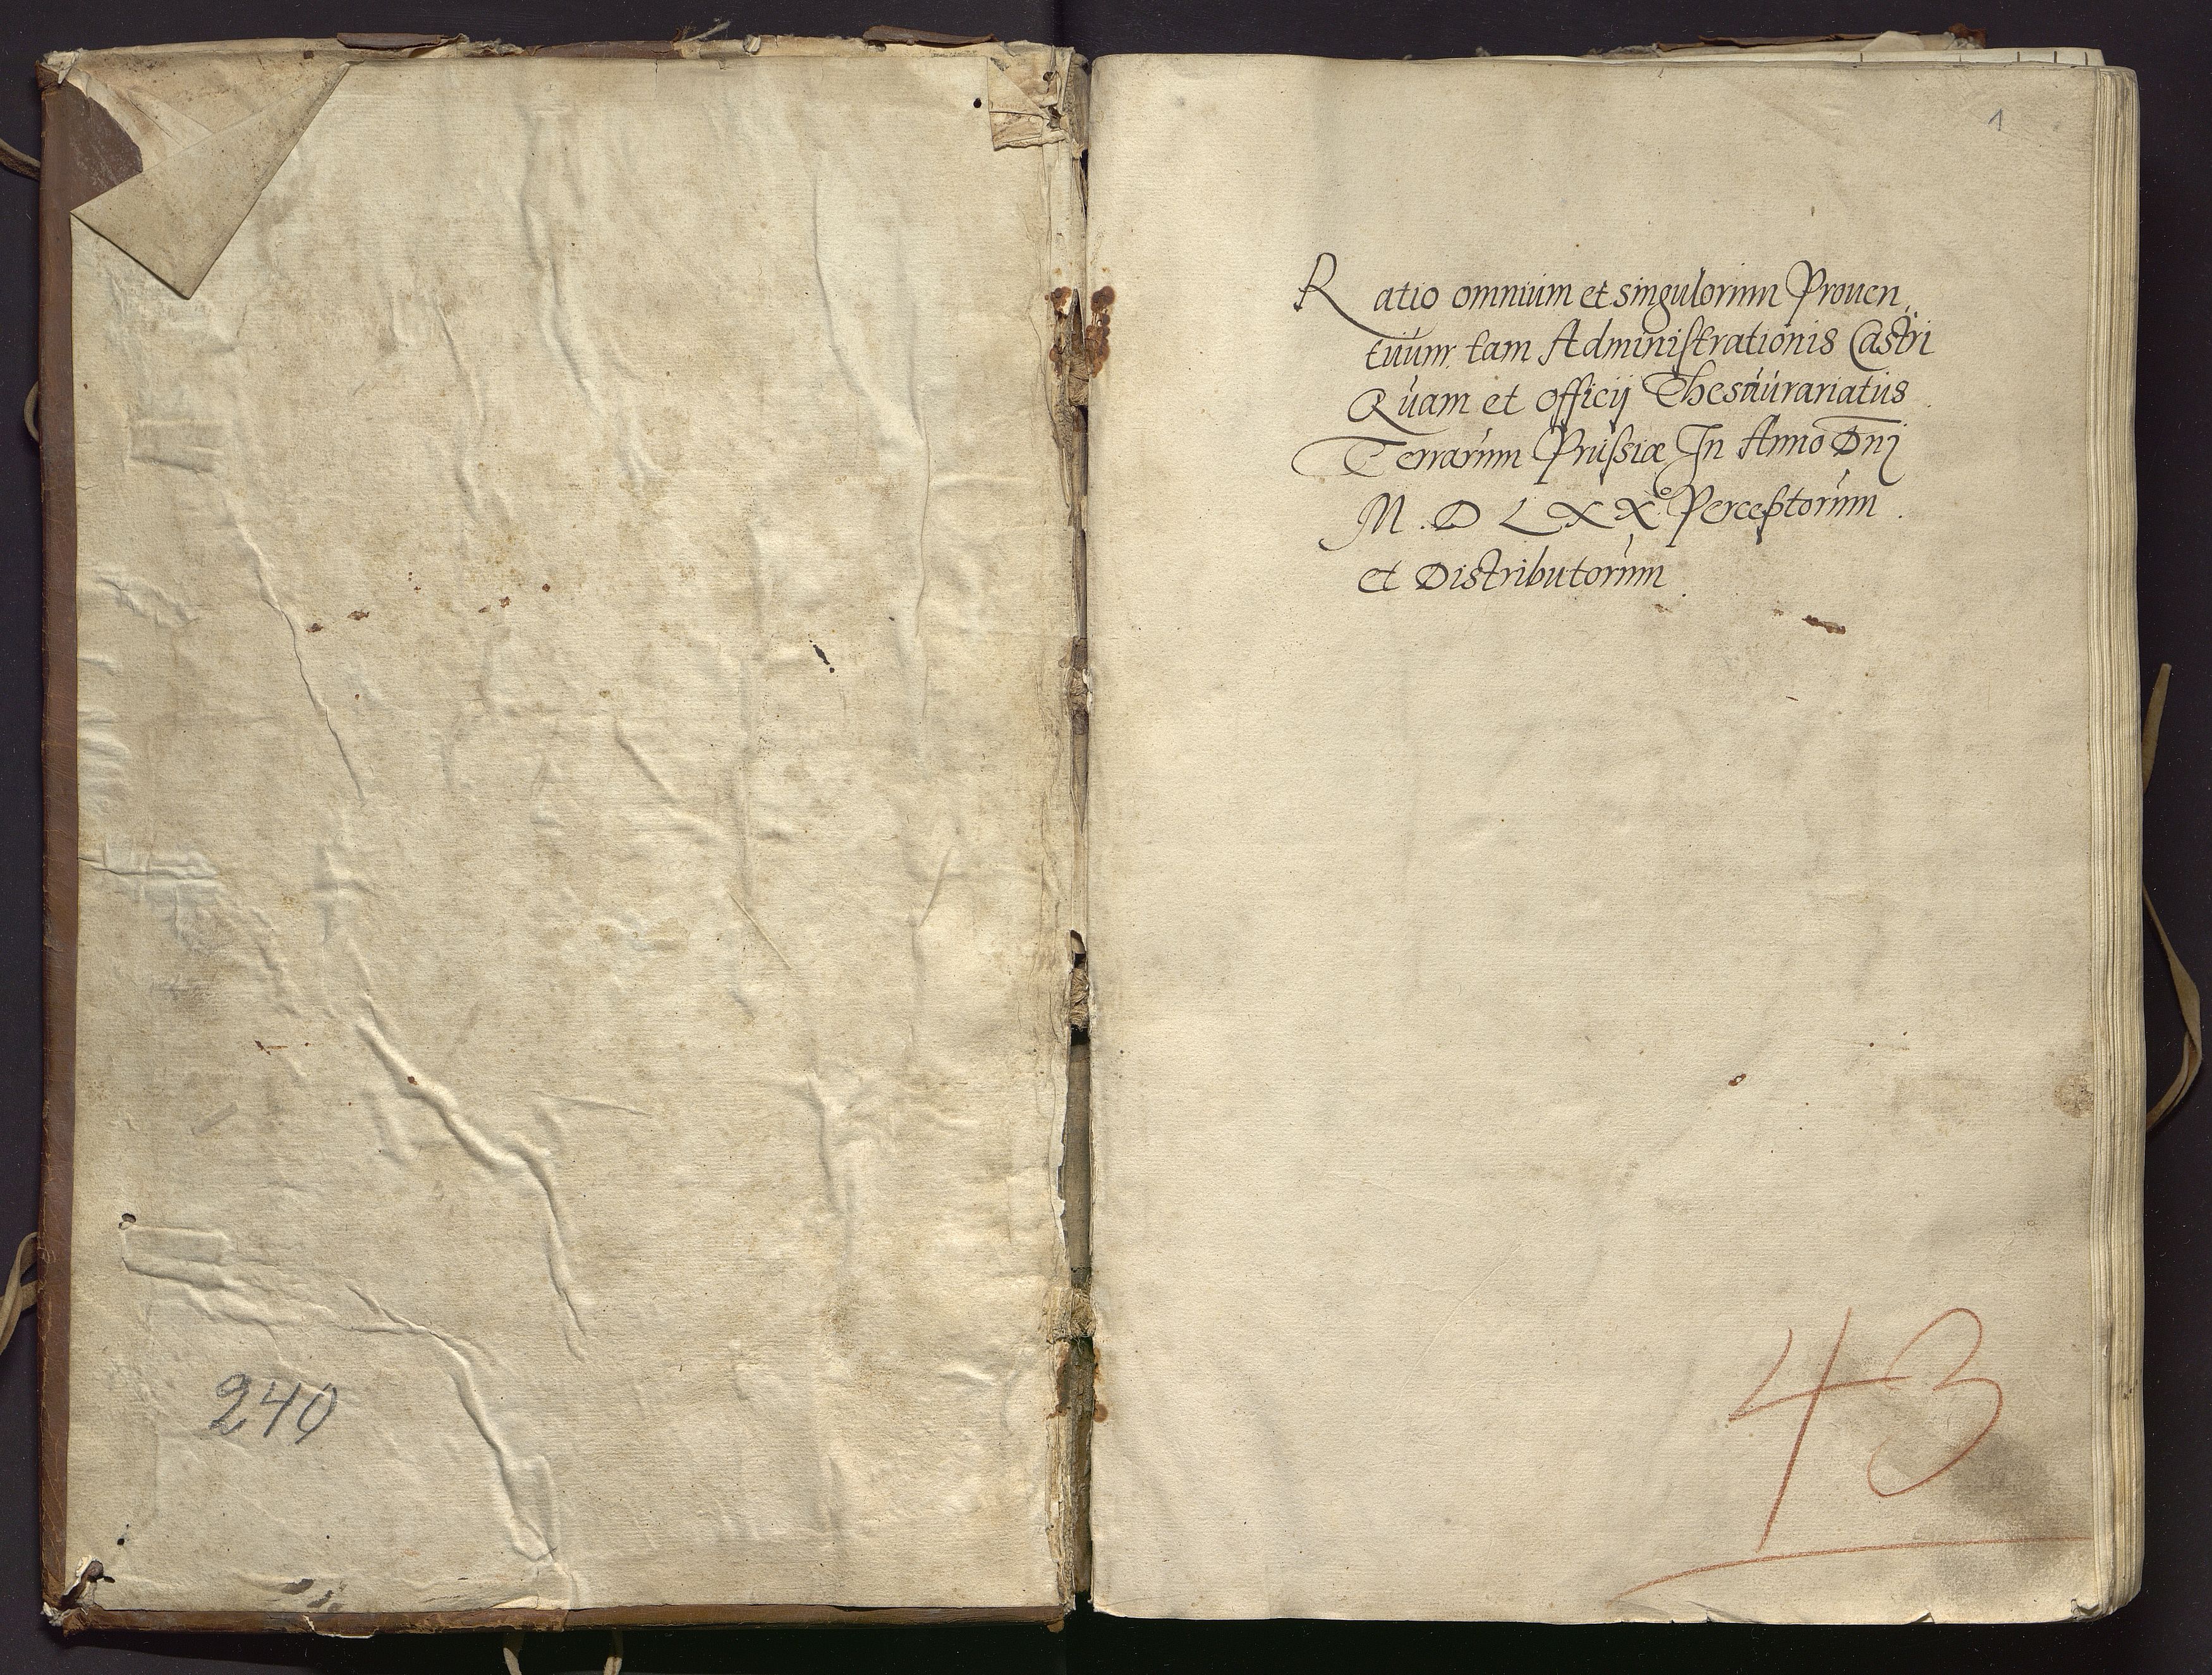 240
1
Ratio omnium et singulorum Proven
tuum tam Administrationis Castri
Quam et officij Thesaurariatus
Terrarum Prussiæ In Anno Dnj
M. D L X X° Perceptorum
et Distributorum
43